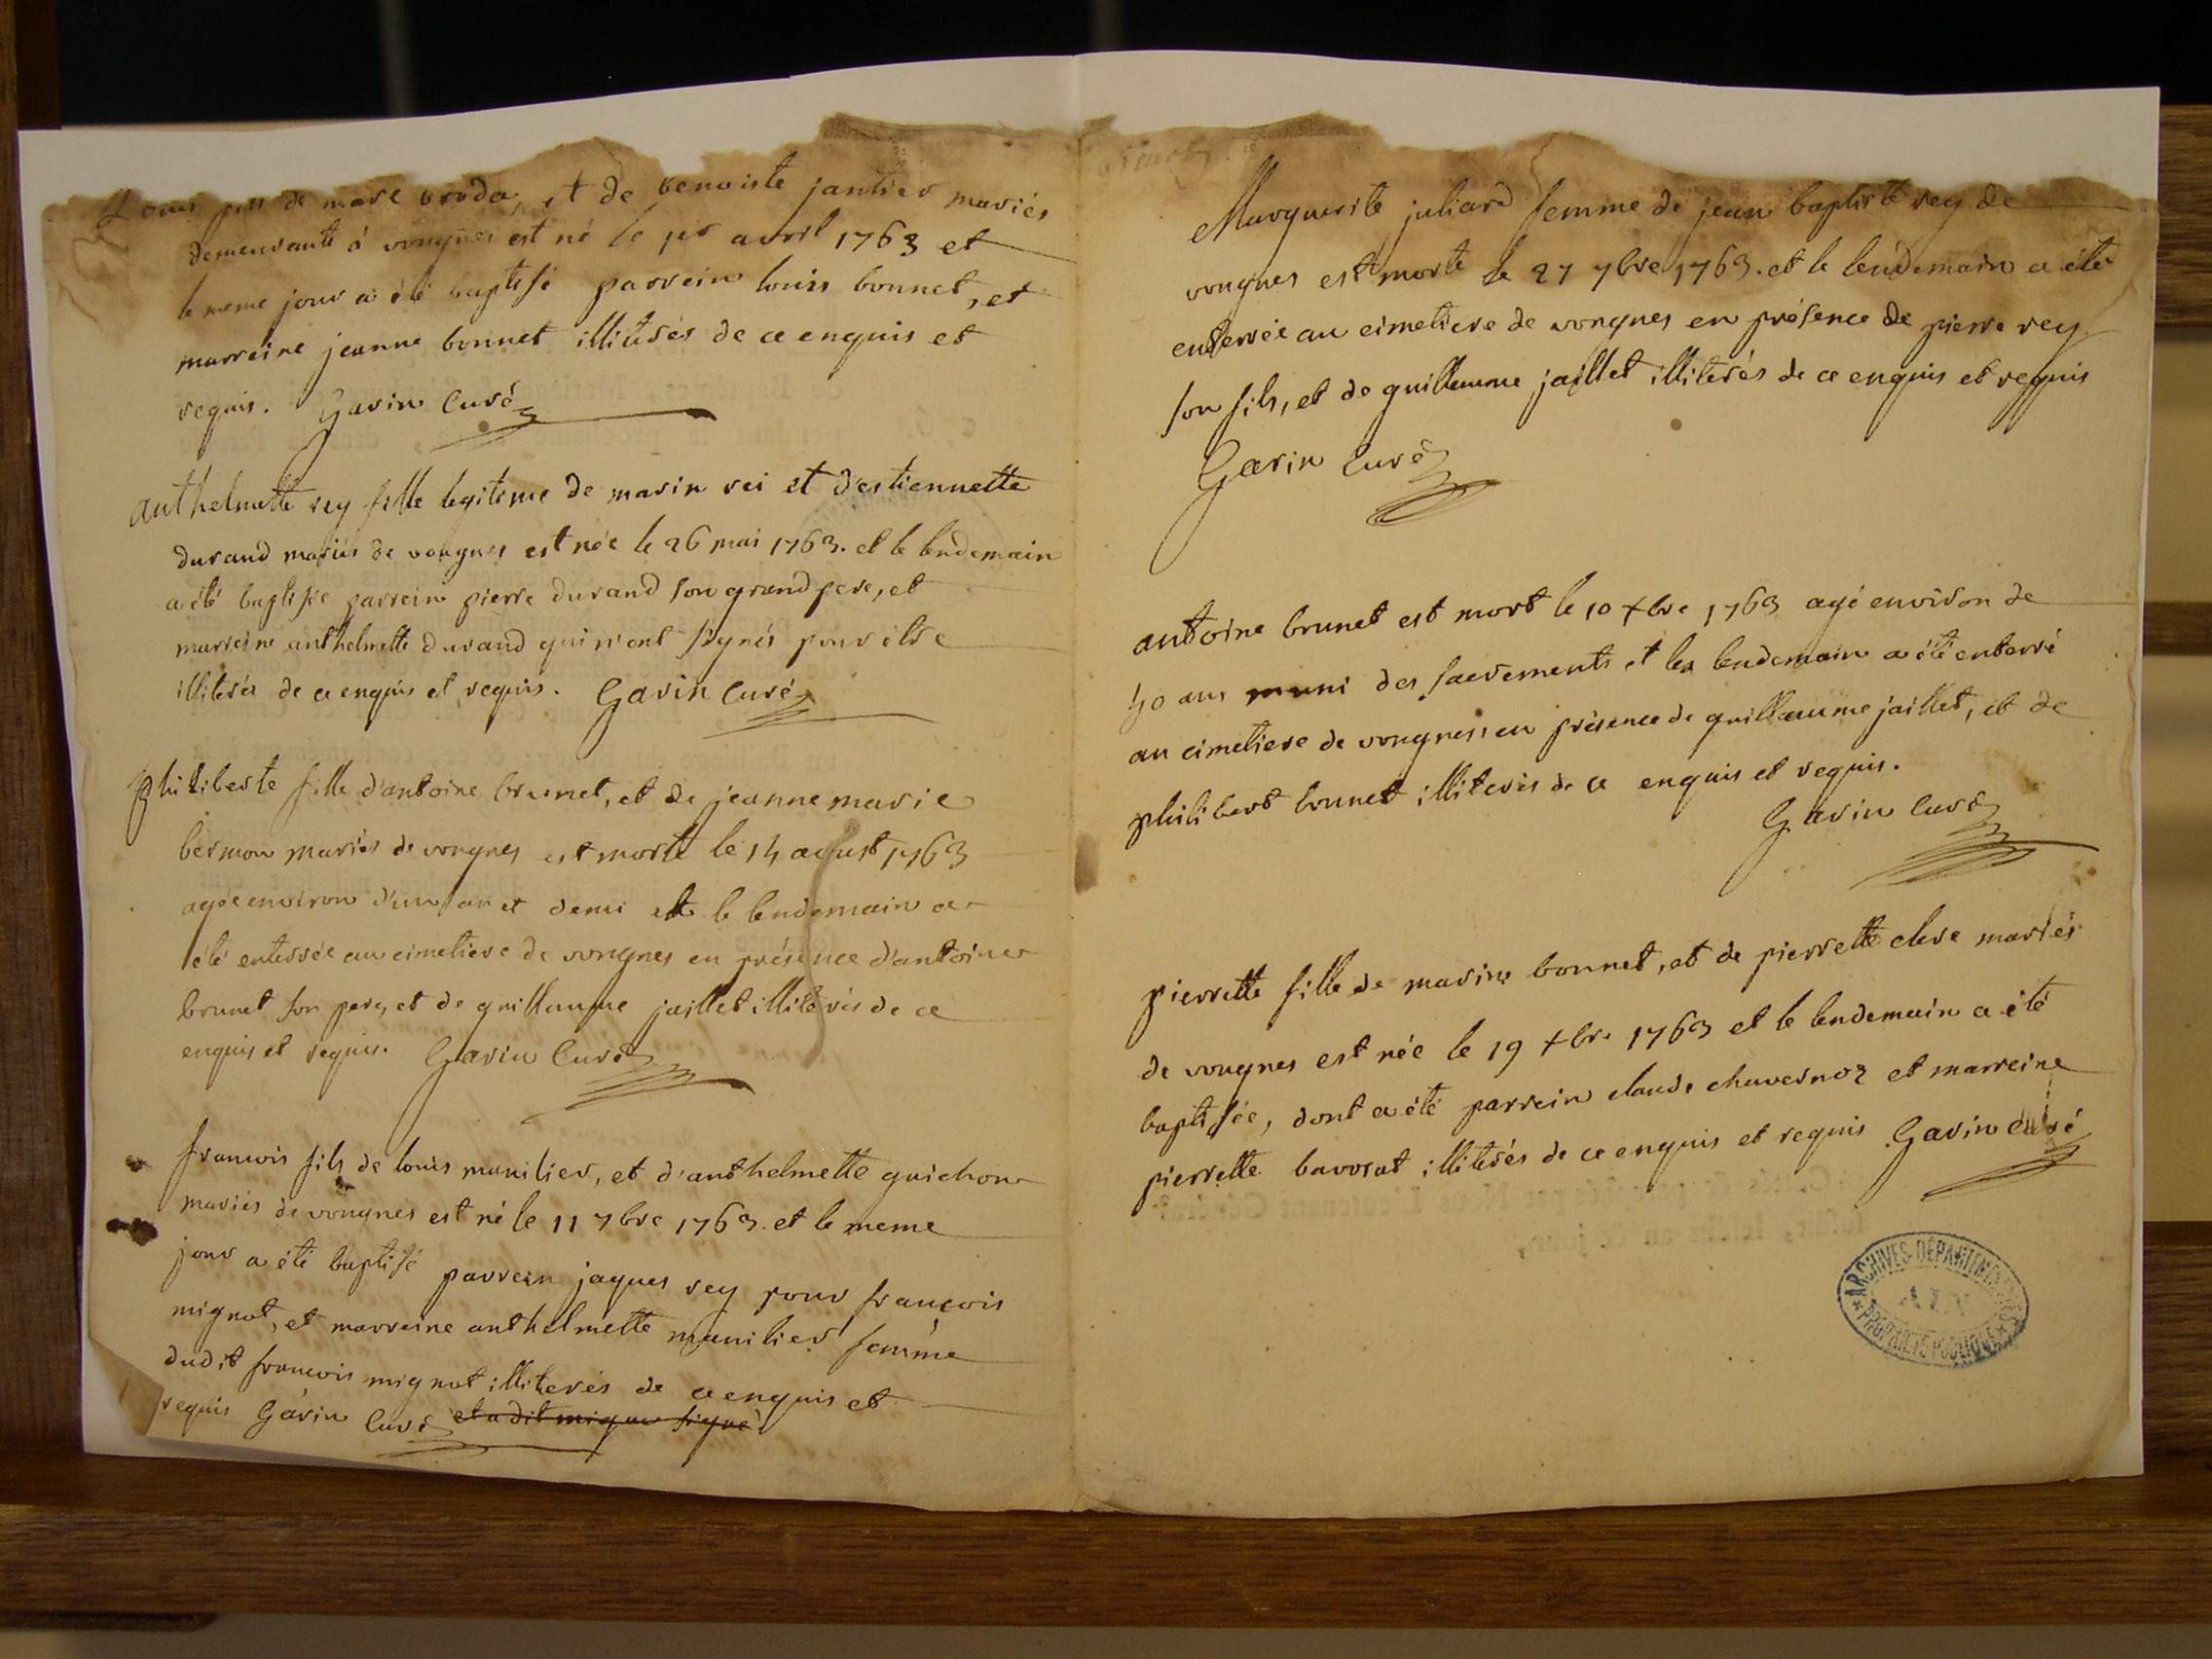 Louis fils de marc broda, et de benoiste jantier mariés
demeurants à vongnes est né le 1er avril 1763 et
le meme jour a été baptisé parrein louis bonnet, et
marreine jeanne bonnet illiterés de ce enquis et
requis. Gavin Curé
anthelmette rey fille legitime de marin rei et d'estiennette
durand mariés de vongnes est née le 26 mai 1763. et le lendemain
a été baptisée parrein pierre durand son grand pere, et
marreine anthelmette durand qui n'ont signés pour être
illiterés de ce enquis et requis. Gavin Curé
philiberte fille d'antoine brunet, et de jeanne marie
bermon mariés de vongnes est morte le 14 aoust 1763
agée environ d'un an et demi et le lendemain a
été enterrée au cimetiere de vongnes en présence d'antoine
brunet son pere, et de guillaume jaillet illiterés de ce
enquis et requis. Gavin Curé
francois fils de louis munilier, et d'anthelmette guichon
mariés de vongnes est né le 11 7bre 1763. et le meme
jour a été baptisé parrein jaques rey pour françois
mignot, et marreine anthelmette munilier femme
dudit francois mignot illiterés de ce enquis et
requis Gavin Curé
Marguerite juliard femme de jean baptiste rey de
vongnes est morte le 27 7bre 1763. et le lendemain a été
enterrée au cimetiere de vongnes en présence de pierre rey
son fils, et de guillaume jaillet illiterés de ce enquis et requis
Gavin Curé
antoine brunet est mort le 10 xbre 1763 agé environ de
40 ans muni des sacrements et le lendemain a été enterré
au cimetiere de vongnes en présence de guillaume jaillet, et de
philibert brunet illiterés de ce enquis et requis.
Gavin Curé
pierrette fille de marin bonnet, et de pierrette clere mariés
de vongnes est née le 19 xbre 1763 et le lendemain a été
baptisée, dont a été parrein claude chavesnoz et marreine
pierrette bavorat illiterés de ce enquis et requis Gavin Curé
ARCHIVES DÉPARTEMENTALES
AIN
PROPRIÉTÉ PUBLIQUE